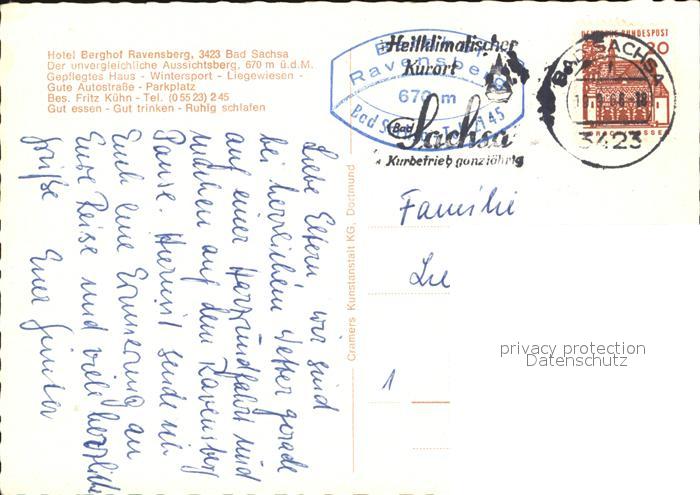 Hotel Berghof Ravensberg, 3423 Bad Sachsa
Der unvergleichliche Aussichtsberg, 670 m ü.d.M.
Gepflegtes Haus - Wintersport - Liegewiesen -
Gute Autostraße - Parkplatz
Bes. Fritz Kühn - Tel. (0 55 23) 2 45
Gut essen - Gut trinken - Ruhig schlafen
Heilklimatischer
Kurort
Bad
Sachsa
* Kurbetrieb ganzjährig
Ravensberg
670 m
Bad
245
DEUTSCHE BUNDESPOST
20
BAD SACHSA
3423
Liebe Eltern, wir sind
bei herrlichem Wetter gerade
auf einer Harzrundfahrt und
machen auf dem Ravensberg
Pause. Hiermit sende ich
Euch eine Erinnerung an
Eure Reise und viele herzliche
Grüße Euer Günter
Cramers Kunstanstalt KG, Dortmund
Familie
1
privacy protection
Datenschutz